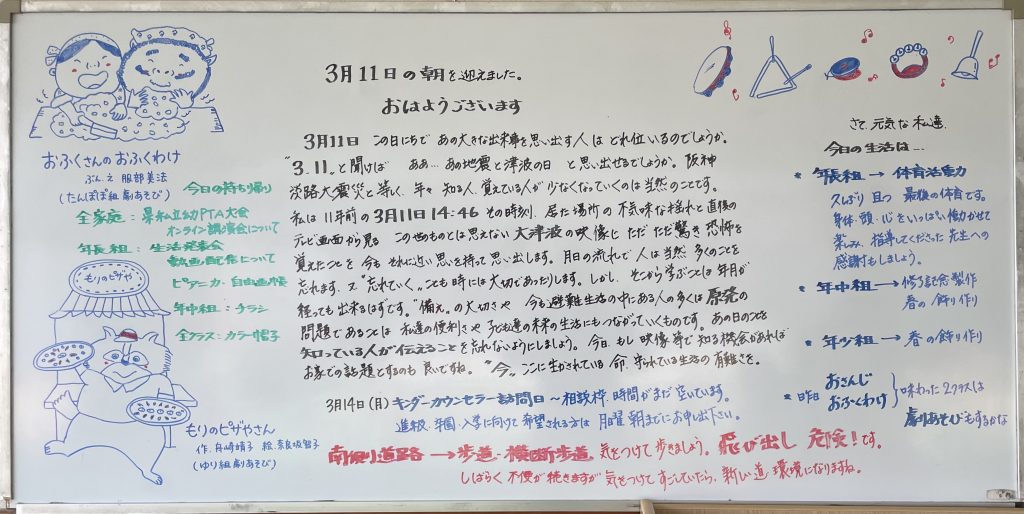 おふくさんのおふくわけ
ぶん.え 服部美法
(たんぽぽ組 劇あそび)
今日の持ち帰り
全家庭:県私立幼PTA大会
オンライン講演会について
年長組:生活発表会
動画配信について
ピアニカ・自由画帳
年中組:チラシ
全クラス:カラー帽子
もりのピザや
もりのピザやさん
作.舟崎靖子 絵.奈良坂智子
(ゆり組 劇あそび)
3月11日の朝を迎えました。
おはようございます
3月11日 この日にちで あの大きな出来事を思い出す人は どれ位いるのでしょうか。
"3.11"と聞けば ああ…あの地震と津波の日 と思い出せるでしょうか。阪神
淡路大震災と等しく、年々 知る人、覚えている人が 少なくなっていくのは当然のことです。
私は 11年前の3月11日14:46 その時刻、居た場所の 不気味な揺れと直後の
テレビ画面から見る この世のものとは思えない大津波の映像に ただただ驚き恐怖を
覚えたことを 今も それに近い思いを持って思い出します。月日の流れで 人は当然 多くのことを
忘れます。又"忘れていく"ことも 時には大切であったりします。しかし、そこから学ぶことは 年月が
経っても出来るはずです。"備え"の大切さや 今も避難生活の中にある人の多くは 原発の
問題であることは 私達の便利さや 子ども達の未来の生活にもつながっていくものです。あの日のことを
知っている人が伝えることを忘れないようにしましょう。今日、もし 映像等で知る機会があれば
お家での話題とするのも 良いですね。"今"ここに生かされている命、守られている生活の有難さを。
3月14日(月) キンダーカウンセラー訪問日〜相談枠、時間がまだ空いています。
進級、卒園・入学に向けて希望される方は 月曜朝までにお申出下さい。
南側道路→歩道・横断歩道、気をつけて歩きましょう。飛び出し 危険!です。
しばらく不便が続きますが 気をつけてすごしていたら、新しい道 環境になりますね。
さて、元気な私達、
今日の生活は…
* 年長組→体育活動
久しぶり且つ 最後の体育です。
身体・頭・心をいっぱい働かせて
楽しみ、指導してくださった先生への
感謝もしましょう。
* 年中組→修了記念製作
春の飾り作り
* 年少組→春の飾り作り
* 昨日 おさんじ
おふくわけ
味わった2クラスは
劇あそびもするかな